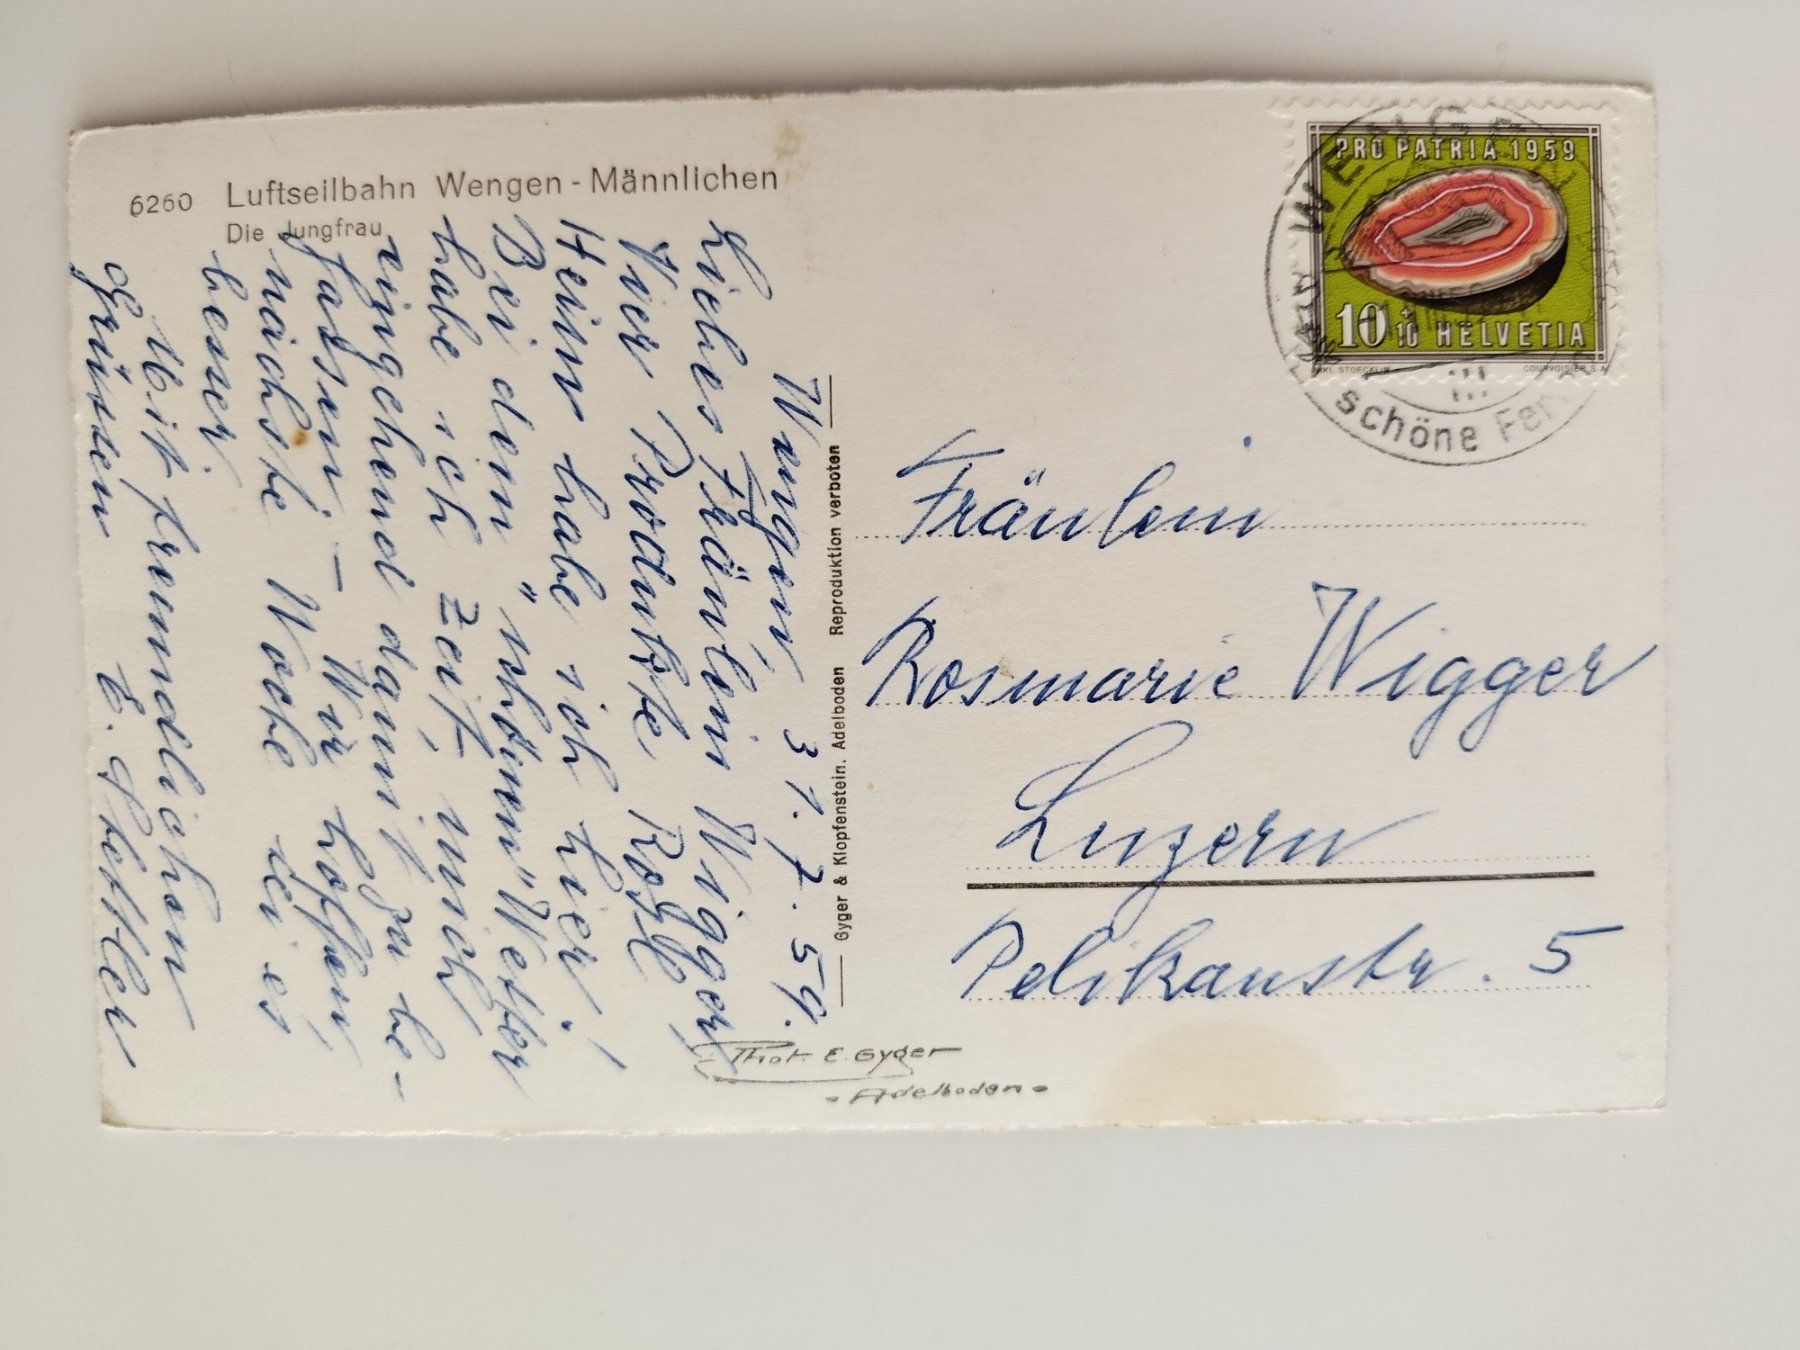 6260 Luftseilbahn Wengen - Männlichen
Die Jungfrau
Wengen, 31. 7. 59.
Liebes Fräulein Wigger,
Vier Produkte
Heim habe ich hier!
Bei dem "schönen" Wetter
habe ich Zeit, mich
eingehend damit zu be-
fassen - Wir hoffen,
nächste Woche sei es
besser.
Mit freundlichen
Grüssen
Gyger & Klopfenstein, Adelboden Reproduktion verboten
Phot. E. Gyger
- Adelboden -
PRO PATRIA 1959
10 + 10 HELVETIA
COURVOISIER S.A.
WENGEN
schöne Ferien
Fräulein
Rosmarie Wigger
Luzern
Pelikanstr. 5